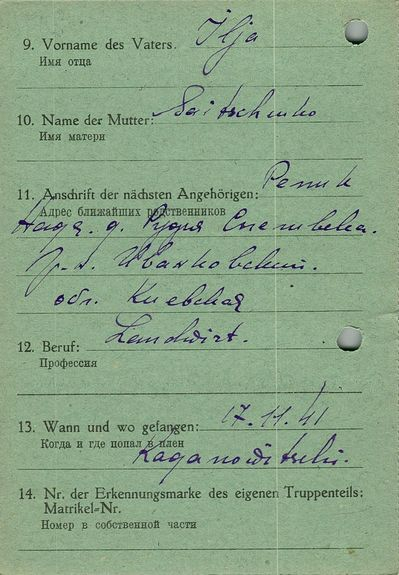 9. Vorname des Vaters: Ilja
Имя отца
10. Name der Mutter: Saitschenko
Имя матери
11. Anschrift der nächsten Angehörigen:
Адрес ближайших родственников
д. Рудня
р-н. Иванковский.
обл. Киевская
12. Beruf: Landwirt.
Профессия
13. Wann und wo gefangen: 17.11.41
Когда и где попал в плен
Kaganowitschi.
14. Nr. der Erkennungsmarke des eigenen Truppenteils:
Matrikel-Nr.
Номер в собственной части